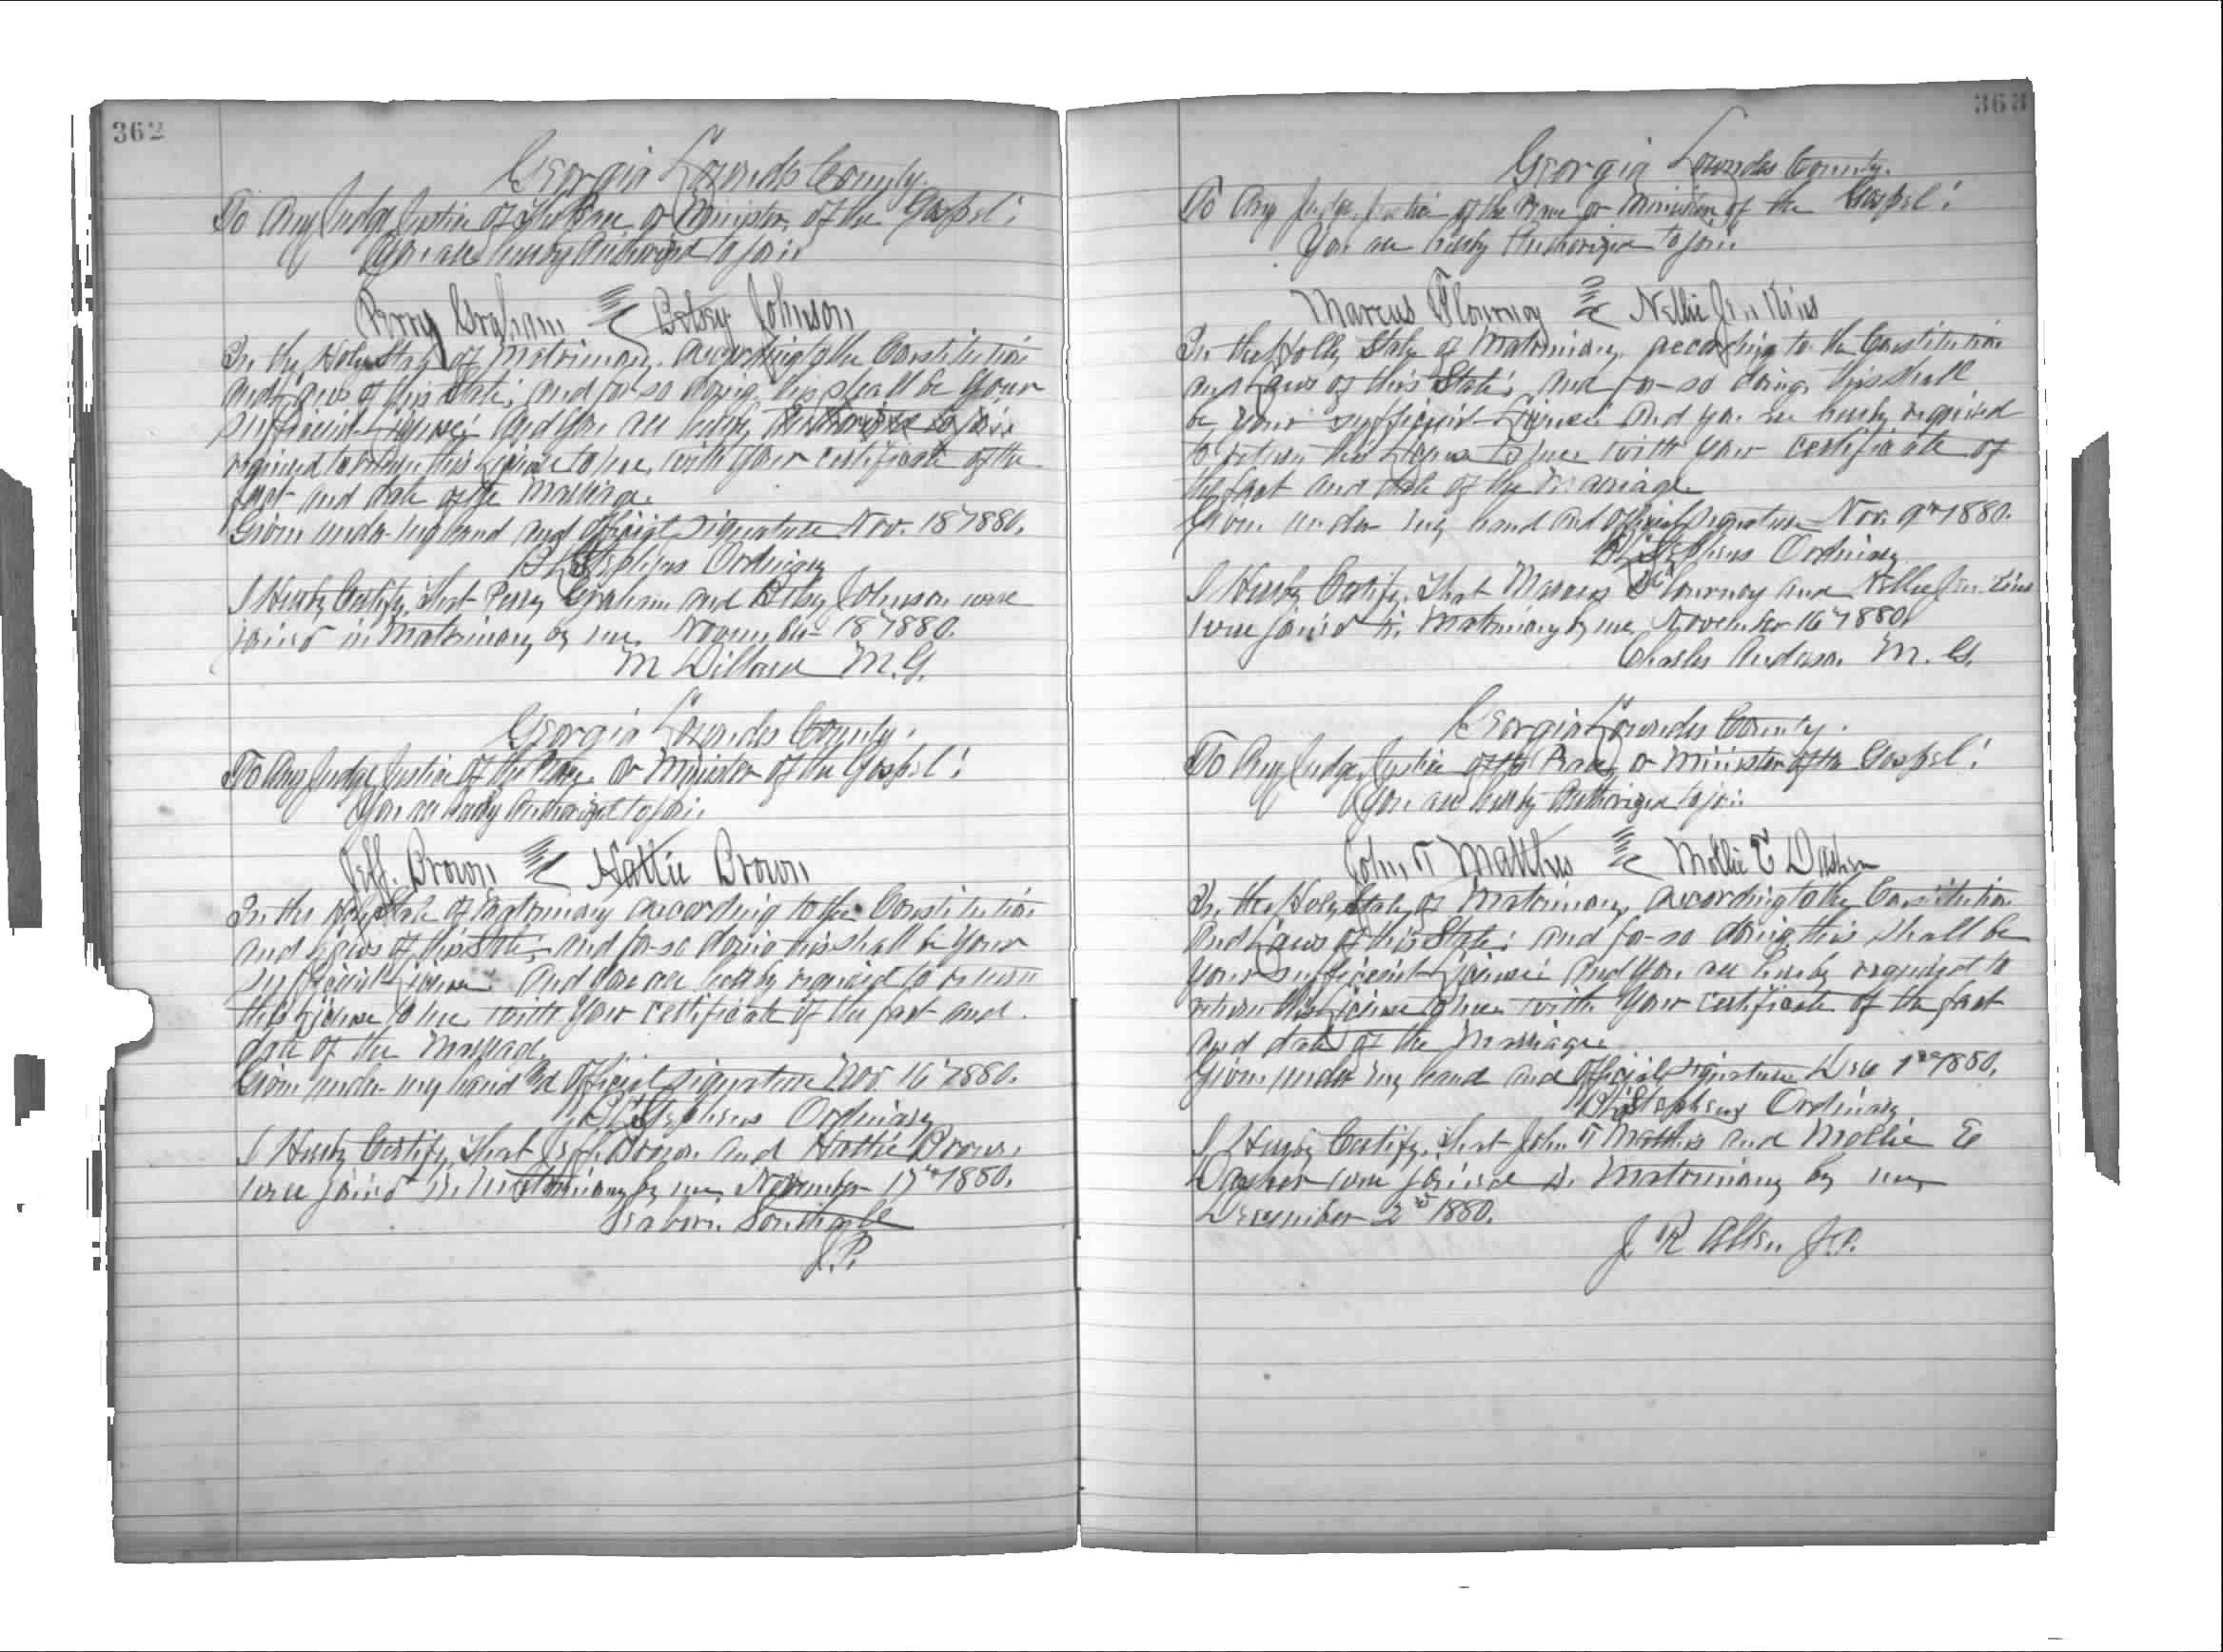 362
Georgia Lowndes County.
To Any Judge Justice of the Peace or Minister of the Gospel!
You are hereby Authorized to join
Perry Graham & Betsy Johnson
In the Holy State of Matrimony according to the Constitution
and Laws of this State; and for so doing this shall be Your
sufficient License. And You are hereby Authorized to join
required to return this License to me, with Your certificate of the
fact and date of the Marriage.
Given under my hand and Official Signature Nov. 18" 1880.
Stephens Ordinary
I Hereby Certify, That Perry Graham and Betsy Johnson were
joined in Matrimony by me November 18" 1880.
M Dillard M.G.
Georgia Lowndes County.
To Any Judge, Justice of the Peace or Minister of the Gospel!
You are hereby Authorized to join
Jeff. Brown & Hattie Brown
In the Holy State of Matrimony according to the Constitution
and Laws of this State, and for so doing this shall be Your
sufficient License. And You are hereby required to return
this License to me with Your certificate of the fact and
date of the Marriage.
Given under my hand and Official Signature Nov. 16" 1880.
Stephens Ordinary
I Hereby Certify, That Jeff. Brown and Hattie Brown
were joined in Matrimony by me, November 17th 1880.
J.P.
363
Georgia Lowndes County.
To Any Judge, Justice of the Peace or Minister of the Gospel!
You are hereby Authorized to join
Marcus Flournoy & Nellie Jenkins
In the Holly State of Matrimony, according to the Constitution
and Laws of this State; and for so doing this shall
be your sufficient License. And you are hereby required
to return this License to me with your certificate of
the fact and date of the Marriage
Given under my hand and Official Signature Nov. 9th 1880.
Stephens Ordinary
I Hereby Certify, That Marcus Flournoy and Nellie Jenkins
were joined in Matrimony by me, November 16" 1880.
Charles Anderson M. G.
Georgia Lowndes County.
To Any Judge, Justice of the Peace, or Minister of the Gospel!
You are hereby Authorized to join
John T Matthis & Mollie E Dasher
In the Holy State of Matrimony, according to the Constitution
and Laws of this State; and for so doing, this shall be
Your sufficient License and You are hereby required to
return this License to me with Your certificate of the fact
and date of the Marriage
Given under my hand and Official Signature Dec 1st 1880.
Stephens Ordinary
I Hereby Certify, that John T Matthis and Mollie E
Dasher were joined in Matrimony by me,
December 2d 1880.
J. R Allen J.P.